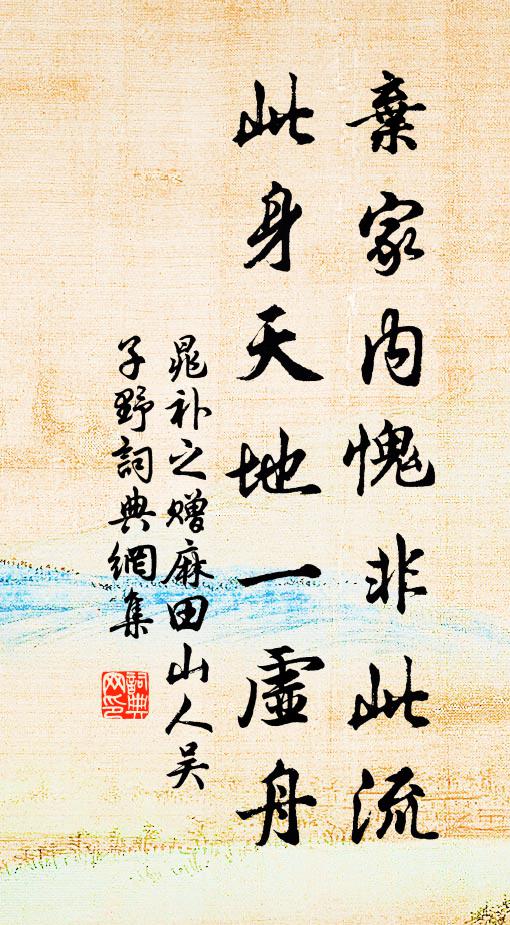 棄家内愧非此流
此身天地一虛舟
晁补之赠麻田山人吴
子野詞典網集
詞典網印